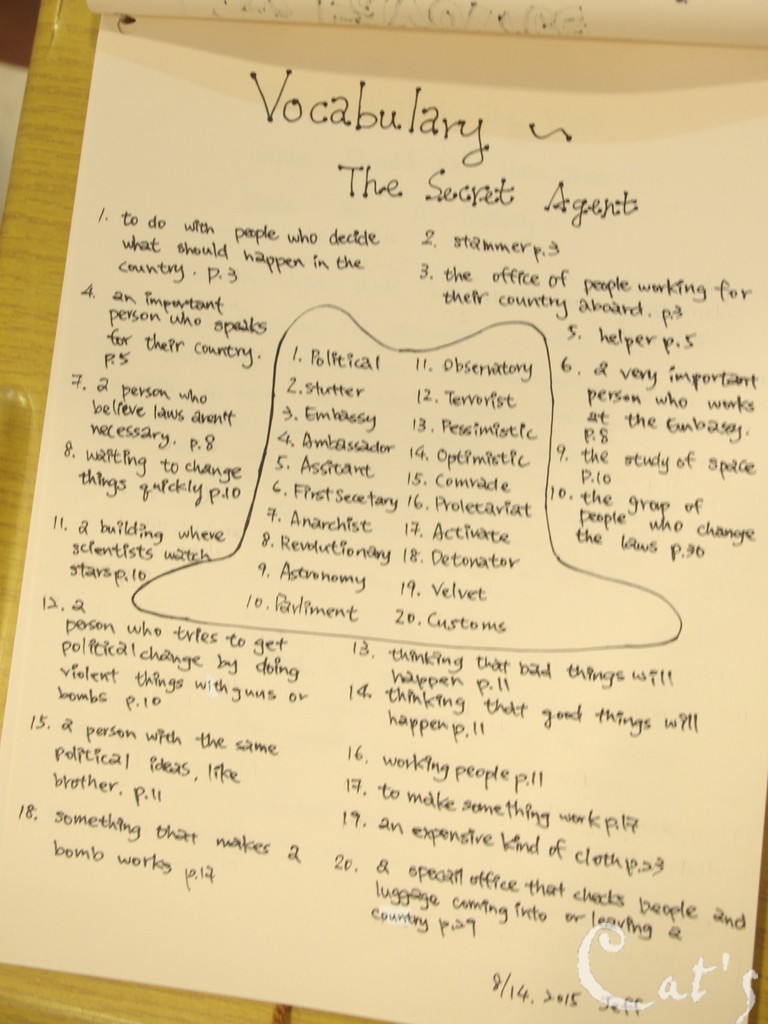 Vocabulary ~
The Secret Agent
1. to do with people who decide
what should happen in the
country. p.3
2. stammer p.3
3. the office of people working for
their country aboard. p.3
4. an important
person who speaks
for their country.
p.5
5. helper p.5
6. a very important
person who works
at the Embassy.
p.8
7. a person who
believe laws aren't
necessary. p.8
8. waiting to change
things quickly p.10
9. the study of space
p.10
10. the group of
people who change
the laws p.30
11. a building where
scientists watch
stars p.10
1. Political
2. stutter
3. Embassy
4. Ambassador
5. Assitant
6. First Secetary
7. Anarchist
8. Revolutionary
9. Astronomy
10. Parliment
11. Observatory
12. Terrorist
13. Pessimistic
14. Optimistic
15. Comrade
16. Proletariat
17. Activate
18. Detonator
19. Velvet
20. Customs
12. a
person who tries to get
political change by doing
violent things with guns or
bombs p.10
13. thinking that bad things will
happen p.11
14. thinking that good things will
happen p.11
15. a person with the same
political ideas, like
brother. p.11
16. working people p.11
17. to make something work p.17
18. something that makes a
bomb works p.17
19. an expensive kind of cloth p.23
20. a specail office that checks people and
luggage coming into or leaving a
country p.29
8/14. 2015 Jeff
Cat's